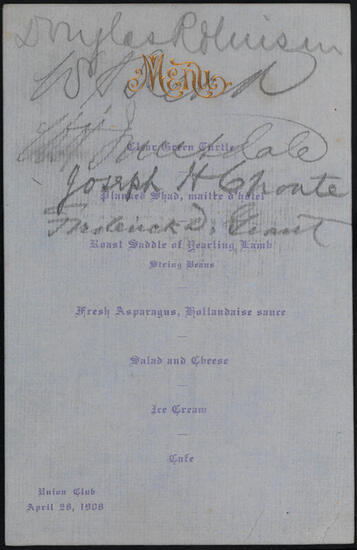 Douglas Robinson
Menu
Clear Green Turtle
Joseph H Choate
Planked Shad, maitre d'hotel
Frederick D. Grant
Roast Saddle of Yearling Lamb
String Beans
—
Fresh Asparagus, Hollandaise sauce
—
Salad and Cheese
—
Ice Cream
—
Cafe
Union Club
April 28, 1908